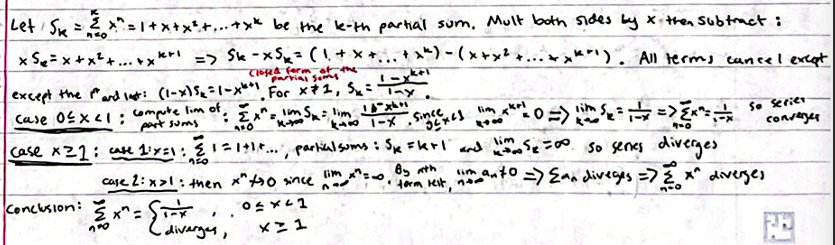 Let, Sₖ = Σₙ₌₀ᵏ xⁿ = 1 + x + x² + ... + xᵏ be the k-th partial sum. Mult both sides by x then subtract :
xSₖ = x + x² + ... + xᵏ⁺¹ => Sₖ - xSₖ = (1 + x + ... + xᵏ) - (x + x² + ... + xᵏ⁺¹). All terms cancel except
closed form of the partial sums
except the 1ˢᵗ and last: (1-x)Sₖ = 1 - xᵏ⁺¹. For x ≠ 1, Sₖ = (1 - xᵏ⁺¹)/(1 - x)
case 0 ≤ x < 1 : compute lim of part sums : Σₙ₌₀^∞ xⁿ = lim_{k→∞} Sₖ = lim_{k→∞} (1 - xᵏ⁺¹)/(1 - x). since 0≤x<1 lim_{k→∞} xᵏ⁺¹ = 0 => lim_{k→∞} Sₖ = 1/(1-x) => Σₙ₌₀^∞ xⁿ = 1/(1-x) so series converges
case x ≥ 1 : case 1: x=1 : Σₙ₌₀^∞ 1 = 1+1+..., partial sums : Sₖ = k+1 and lim_{k→∞} Sₖ = ∞ so series diverges
case 2: x>1 : then xⁿ ↛ 0 since lim_{n→∞} xⁿ = ∞. By nth term test, lim_{n→∞} aₙ ≠ 0 => Σaₙ diverges => Σₙ₌₀^∞ xⁿ diverges
Conclusion: Σₙ₌₀^∞ xⁿ = { 1/(1-x), 0 ≤ x < 1
diverges, x ≥ 1